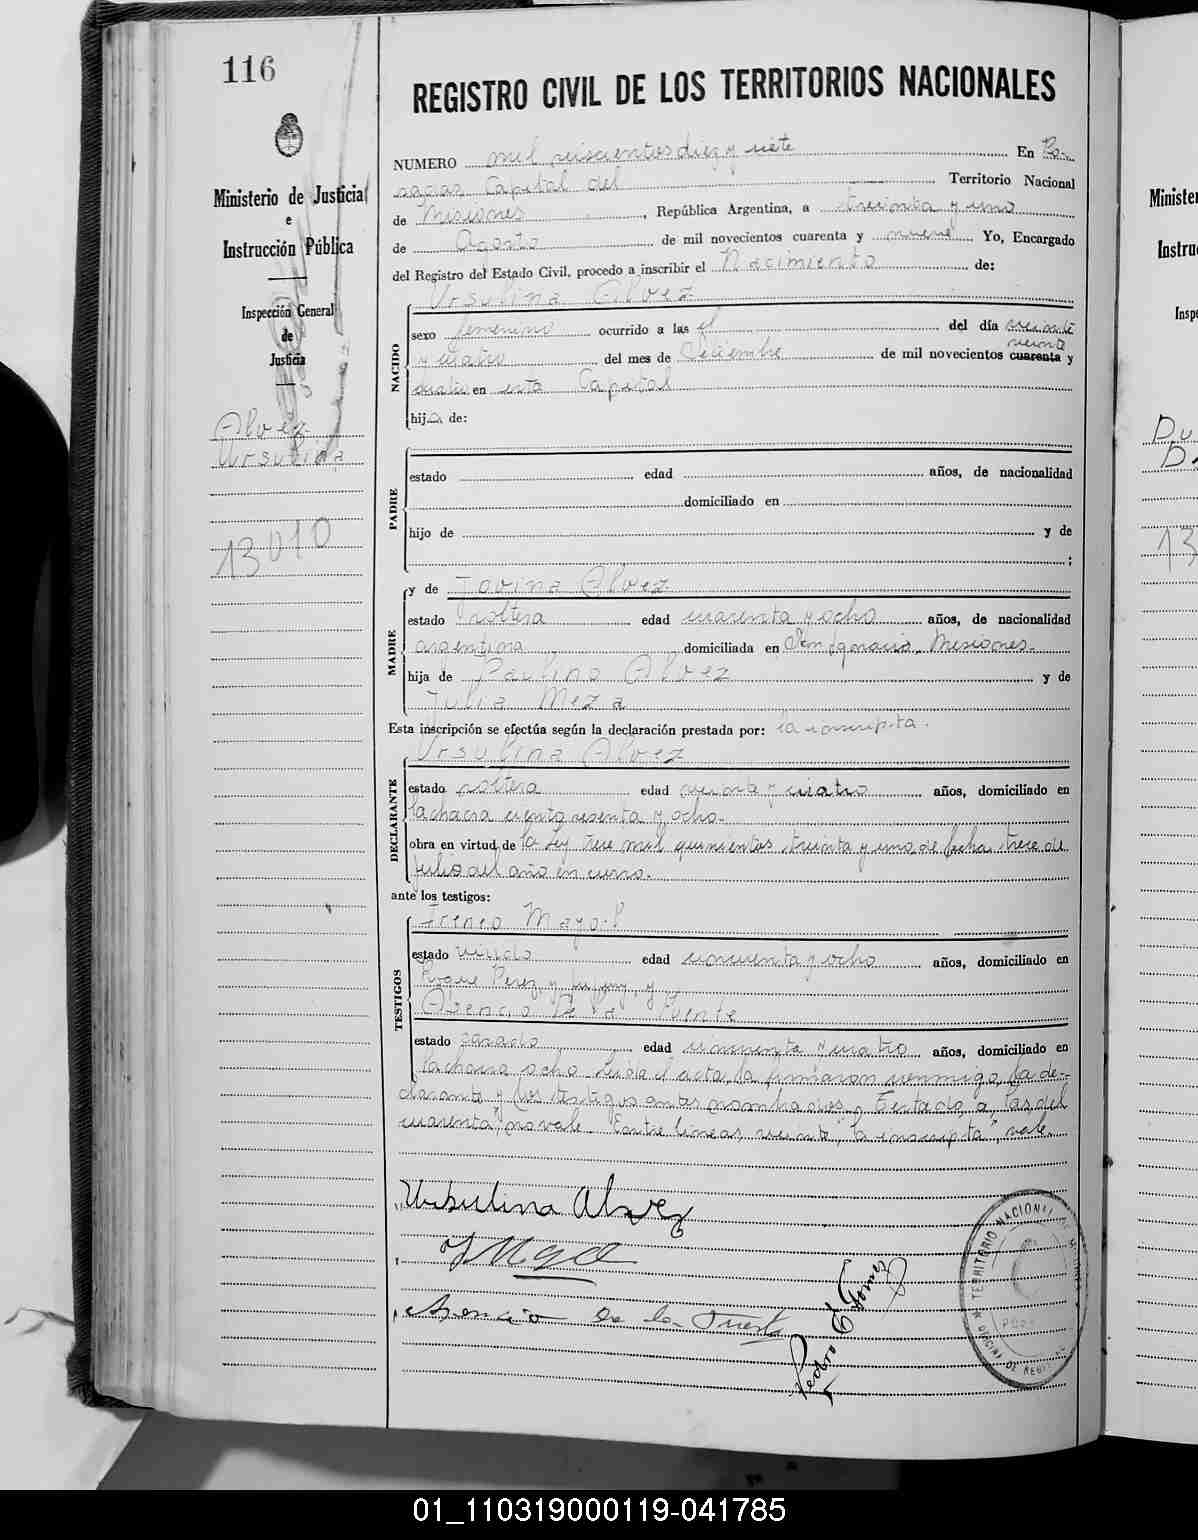 116
REGISTRO CIVIL DE LOS TERRITORIOS NACIONALES
Ministerio de Justicia
e
Instrucción Pública
Inspección General
de
Justicia
Alvez
Ursulina
13010
NUMERO mil seiscientos diez y siete En Po-
sadas Capital del Territorio Nacional
de Misiones, República Argentina, a treinta y uno
de Agosto de mil novecientos cuarenta y nueve Yo, Encargado
del Registro del Estado Civil, procedo a inscribir el Nacimiento de:
Ursulina Alvez
NACIDO
sexo femenino ocurrido a las el del día veinte
veinte
y cuatro del mes de Setiembre de mil novecientos cuarenta y
cuatro en esta Capital
hija de:
PADRE
estado edad años, de nacionalidad
domiciliado en
hijo de y de
;
MADRE
y de Jovina Alvez
estado soltera edad cuarenta y ocho años, de nacionalidad
argentina domiciliada en San Ignacio, Misiones.
hija de Paulino Alvez y de
Julia Meza
Esta inscripción se efectúa según la declaración prestada por: la inscripta.
Ursulina Alvez
DECLARANTE
estado soltera edad veinte y cuatro años, domiciliado en
la chacra ciento sesenta y ocho.
obra en virtud de la Ley trece mil quinientos treinta y uno de fecha trece de
julio del año en curso.
ante los testigos:
TESTIGOS
Ireneo Mayol
estado viudo edad cincuenta y ocho años, domiciliado en
Roque Perez y Jujuy, y
Asencio de la Fuente
estado casado edad cincuenta y cuatro años, domiciliado en
la chacra ocho. Leida el acta, la firmaron conmigo, la de-
clarante y los testigos antes nombrados. Testado, a, las, del
cuarenta", no vale. Entre lineas, veinte", la inscripta", vale.
Ursulina Alvez
Asencio de la Fuente
Pedro E Gomez
TERRITORIO NACIONAL DE MISIONES
Ministe
Instru
Inspe
Du
13
01_110319000119-041785